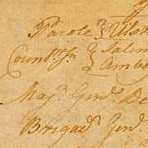 Parole } Ulst
Countn. Sn. } Salem
} Ambo
Majr. Genl. De
Brigadr. Genl.